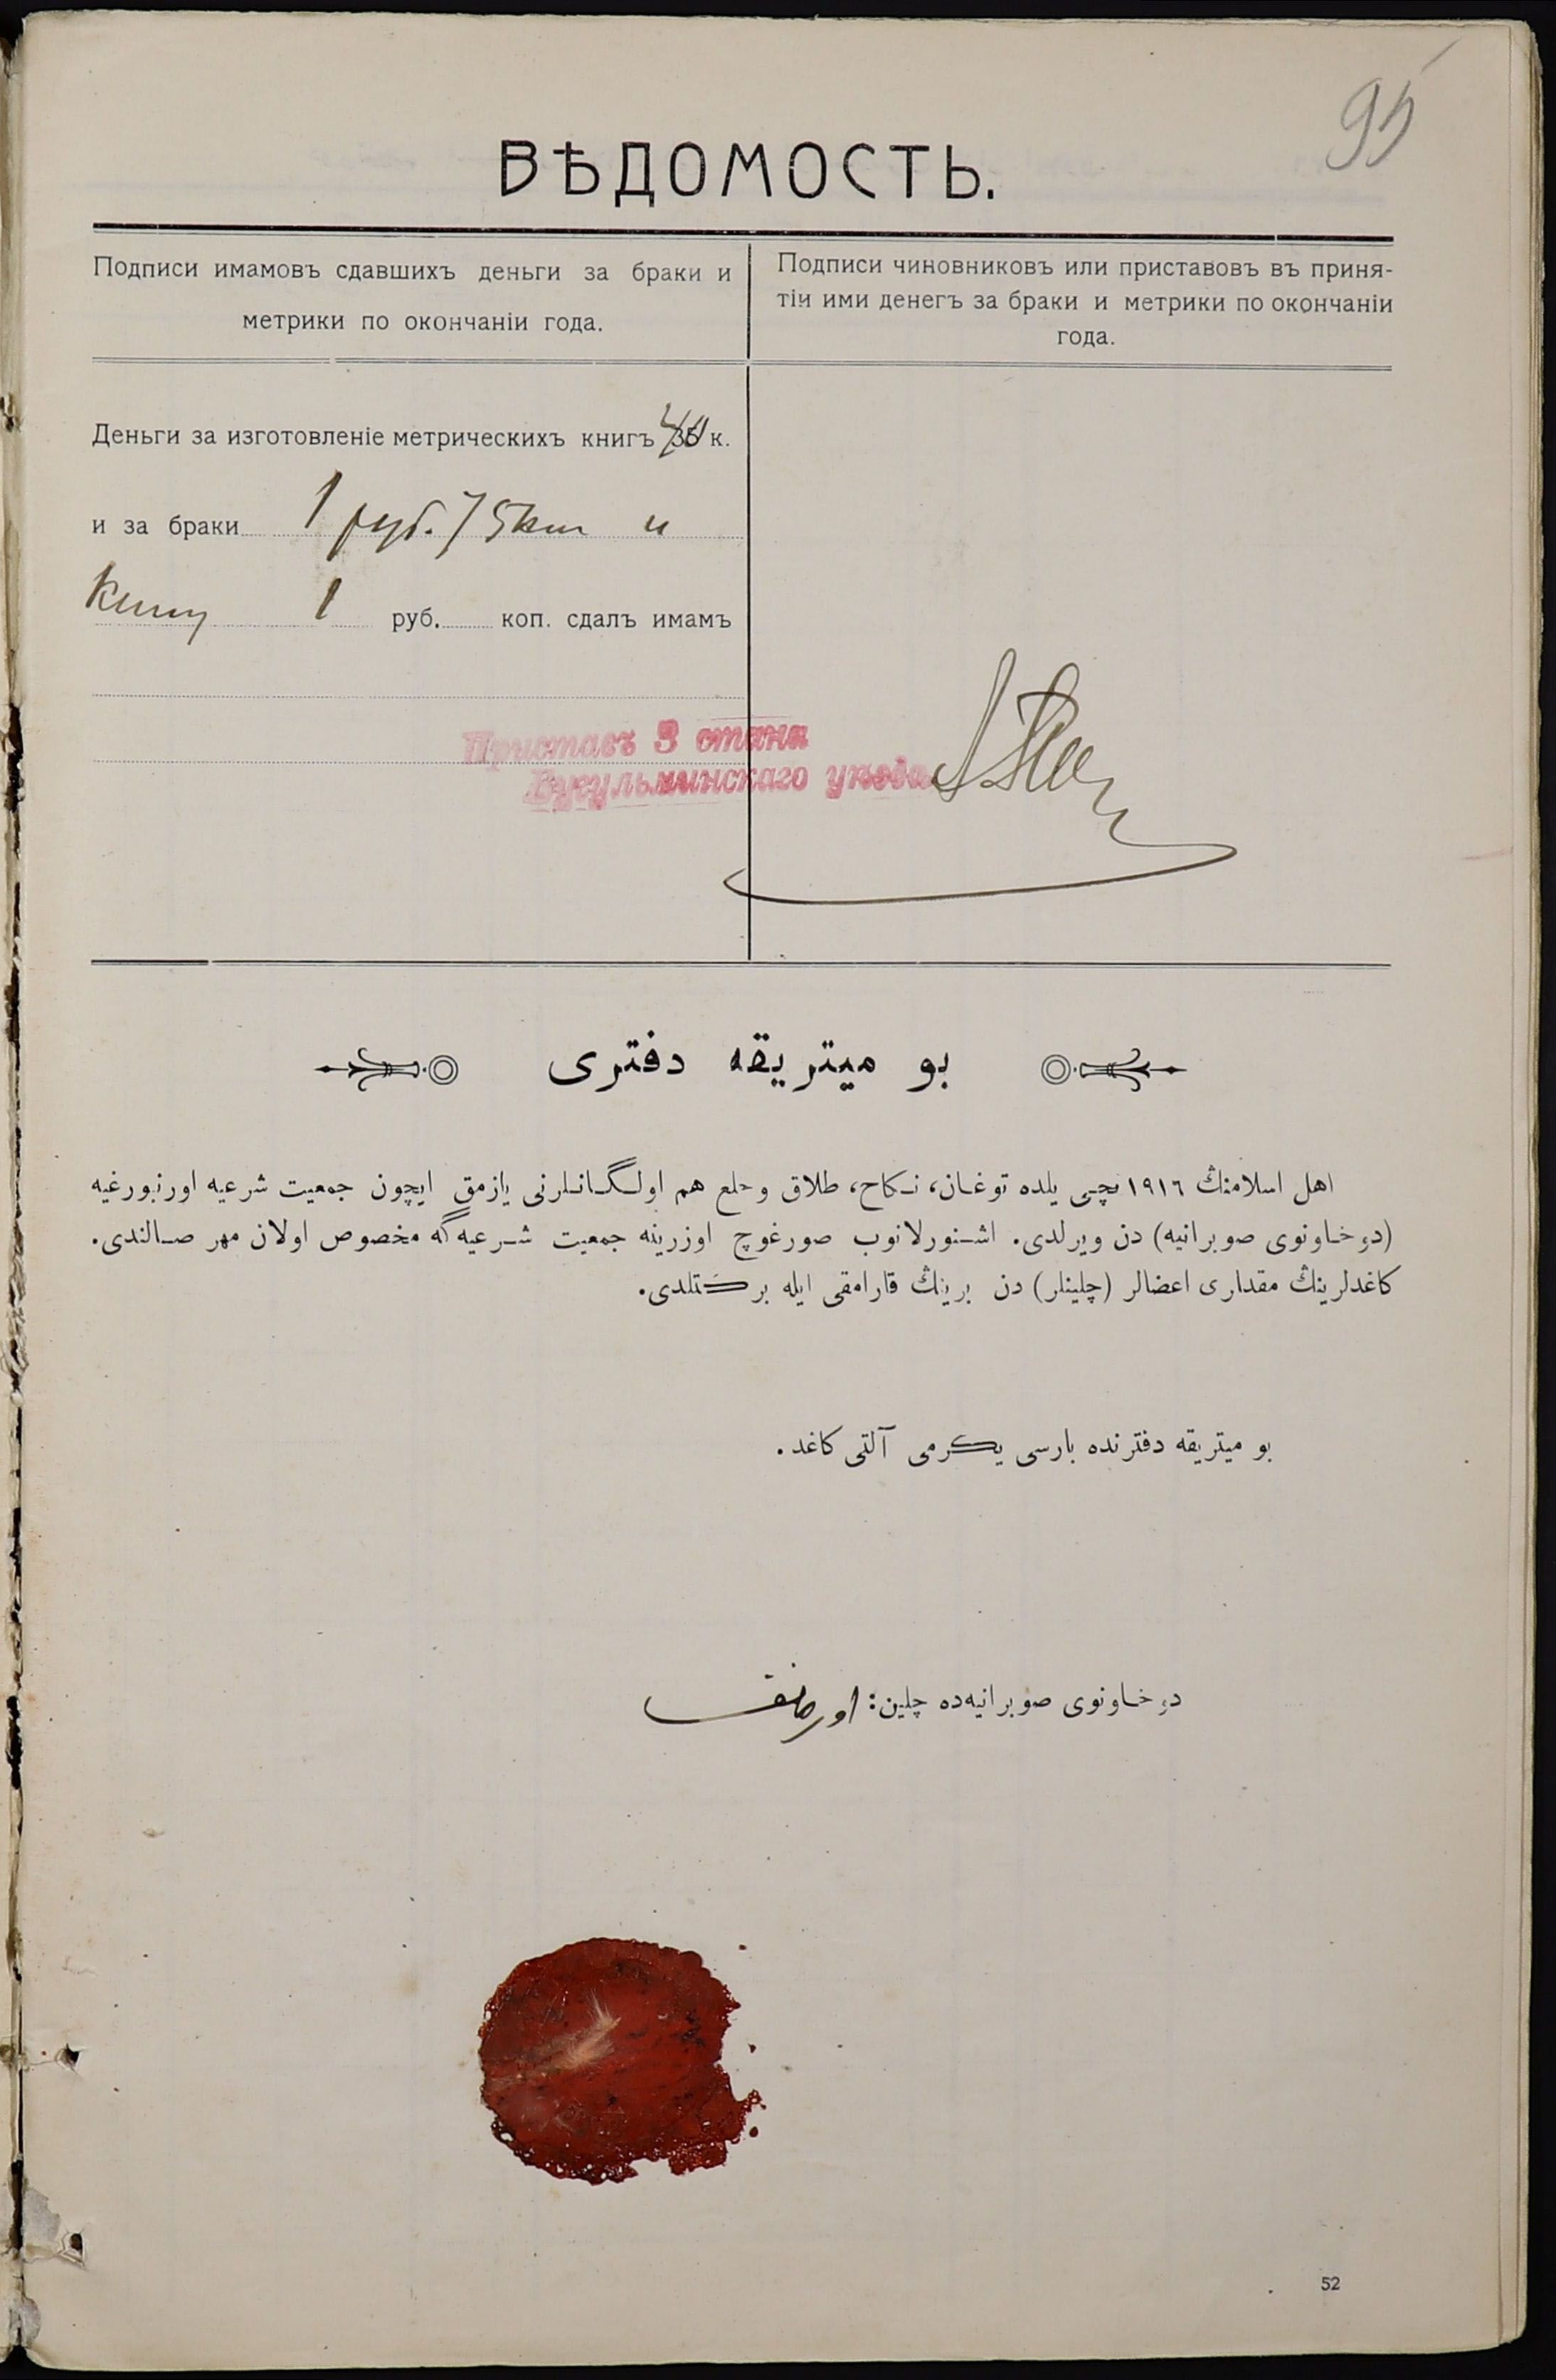 95
ВѢДОМОСТЬ.
Подписи имамовъ сдавшихъ деньги за браки и
метрики по окончаніи года.
Подписи чиновниковъ или приставовъ въ приня-
тіи ими денегъ за браки и метрики по окончаніи
года.
Деньги за изготовленіе метрическихъ книгъ 40 к.
и за браки 1 руб. 75 коп и
книгу 1 руб. коп. сдалъ имамъ
Приставъ 3 стана
Бугульминскаго уѣзда
بو ميتريقه دفترى
اهل اسلامنڭ ١٩١٦ نچى يلده توغان، نكاح، طلاق و خلع هم اولگانلرنى يازمق ايچون جمعيت شرعيه اورنبورغيه
(دوخاونوى صوبرانيه) دن ويرلدى. اشنورلانوب صورغوچ اوزرينه جمعيت شرعيه گه مخصوص اولان مهر صالندى.
كاغدلرينڭ مقدارى اعضالر (چلينلر) دن برينڭ قارامقى ايله بركتلدى.
بو ميتريقه دفترنده بارسى يكرمى آلتى كاغد.
دوخاونوى صوبرانيه‌ده چلين:
52